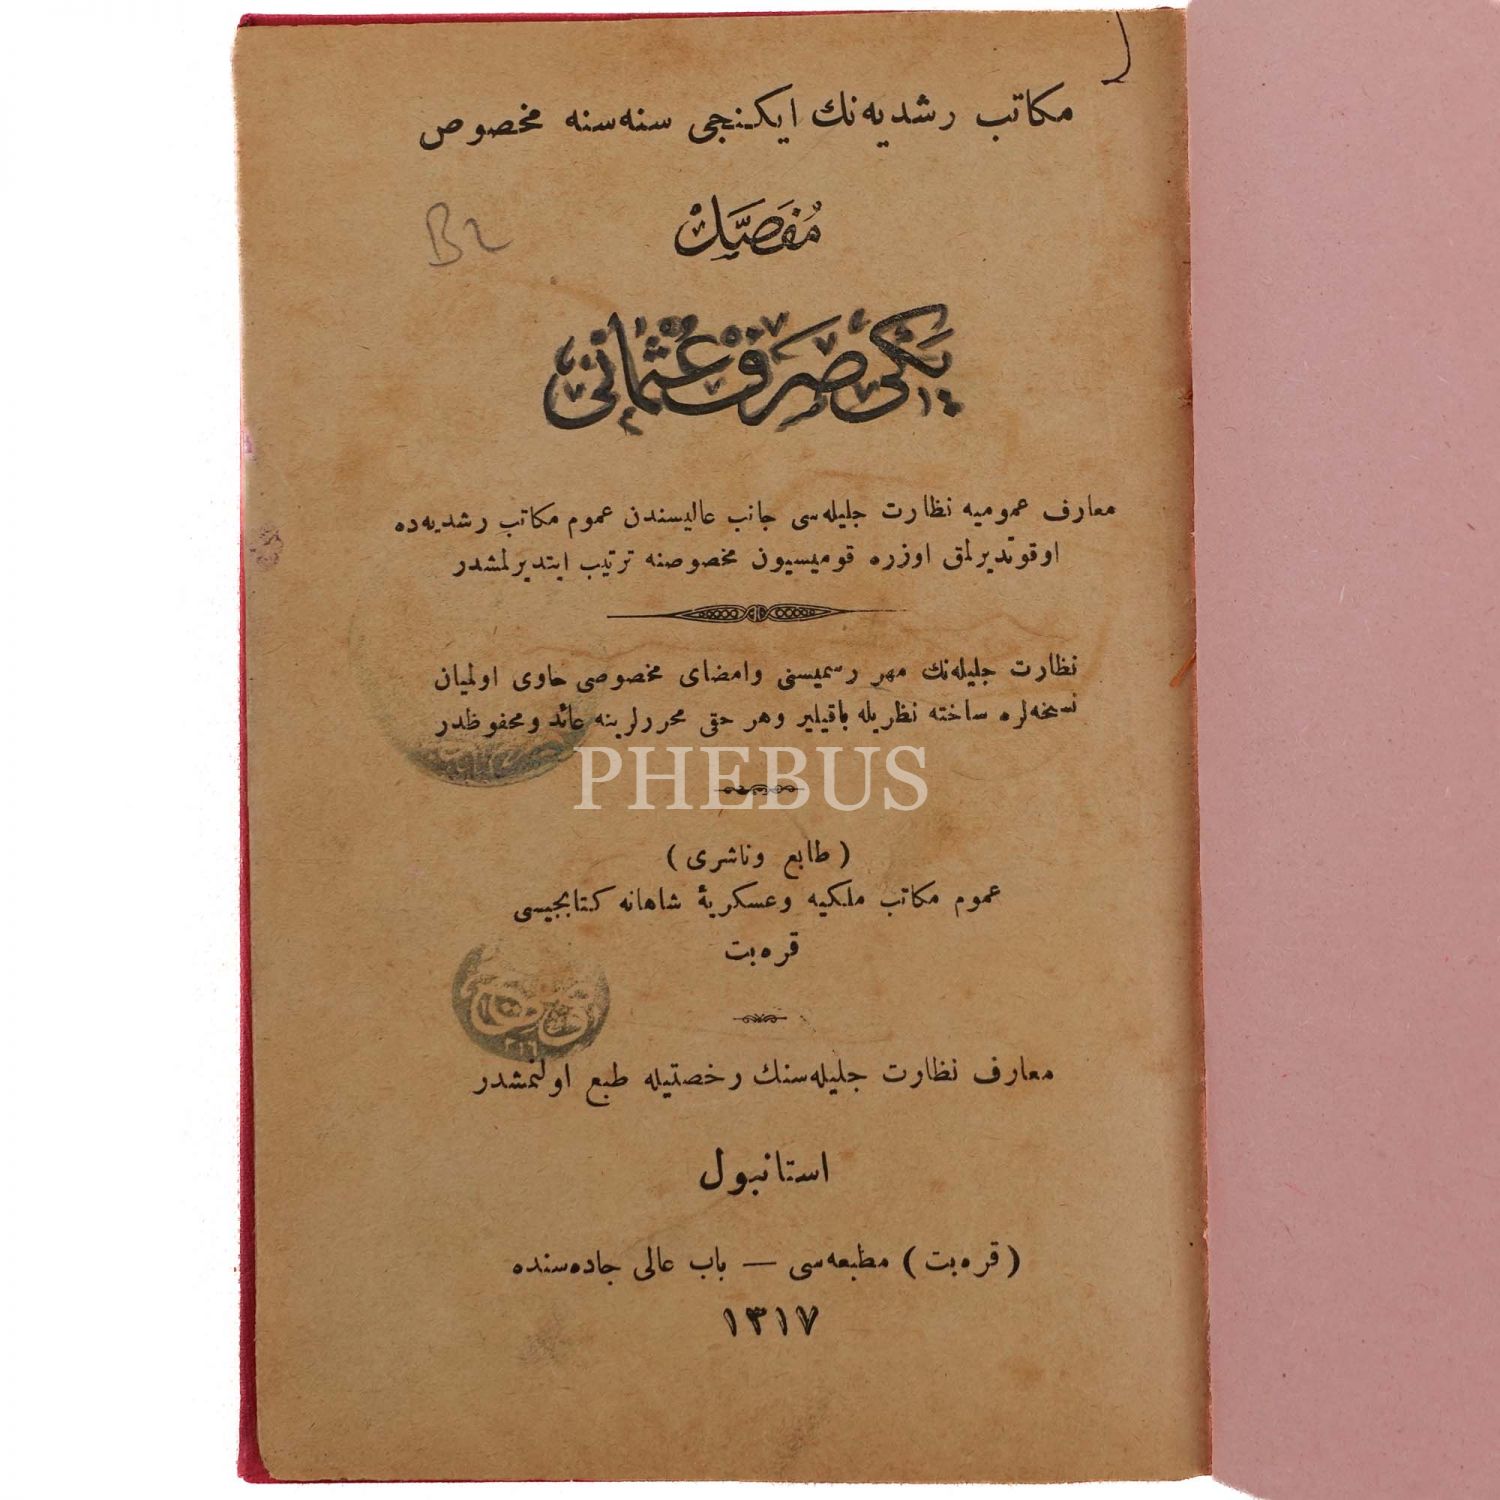 مكاتب رشديه‌نك ايكنجى سنه‌سنه مخصوص
B2
مُفَصَّل
يَكى صَرفِ عُثمانى
معارف عموميه نظارت جليله‌سى جانب عاليسندن عموم مكاتب رشديه‌ده
اوقوتديرلمق اوزره قوميسيون مخصوصنه ترتيب ايتديرلمشدر
نظارت جليله‌نك مهر رسميسنى وامضاى مخصوصى حاوى اولميان
نسخه‌لره ساخته نظريله باقيلير وهر حقى محررلرينه عائد ومحفوظدر
PHEBUS
( طابع وناشرى )
عموم مكاتب ملكيه وعسكريۀ شاهانه كتابجيسى
قره‌بت
٣١٦
معارف نظارت جليله‌سنك رخصتيله طبع اولنمشدر
استانبول
( قره‌بت ) مطبعه‌سى — باب عالى جاده‌سنده
١٣١٧